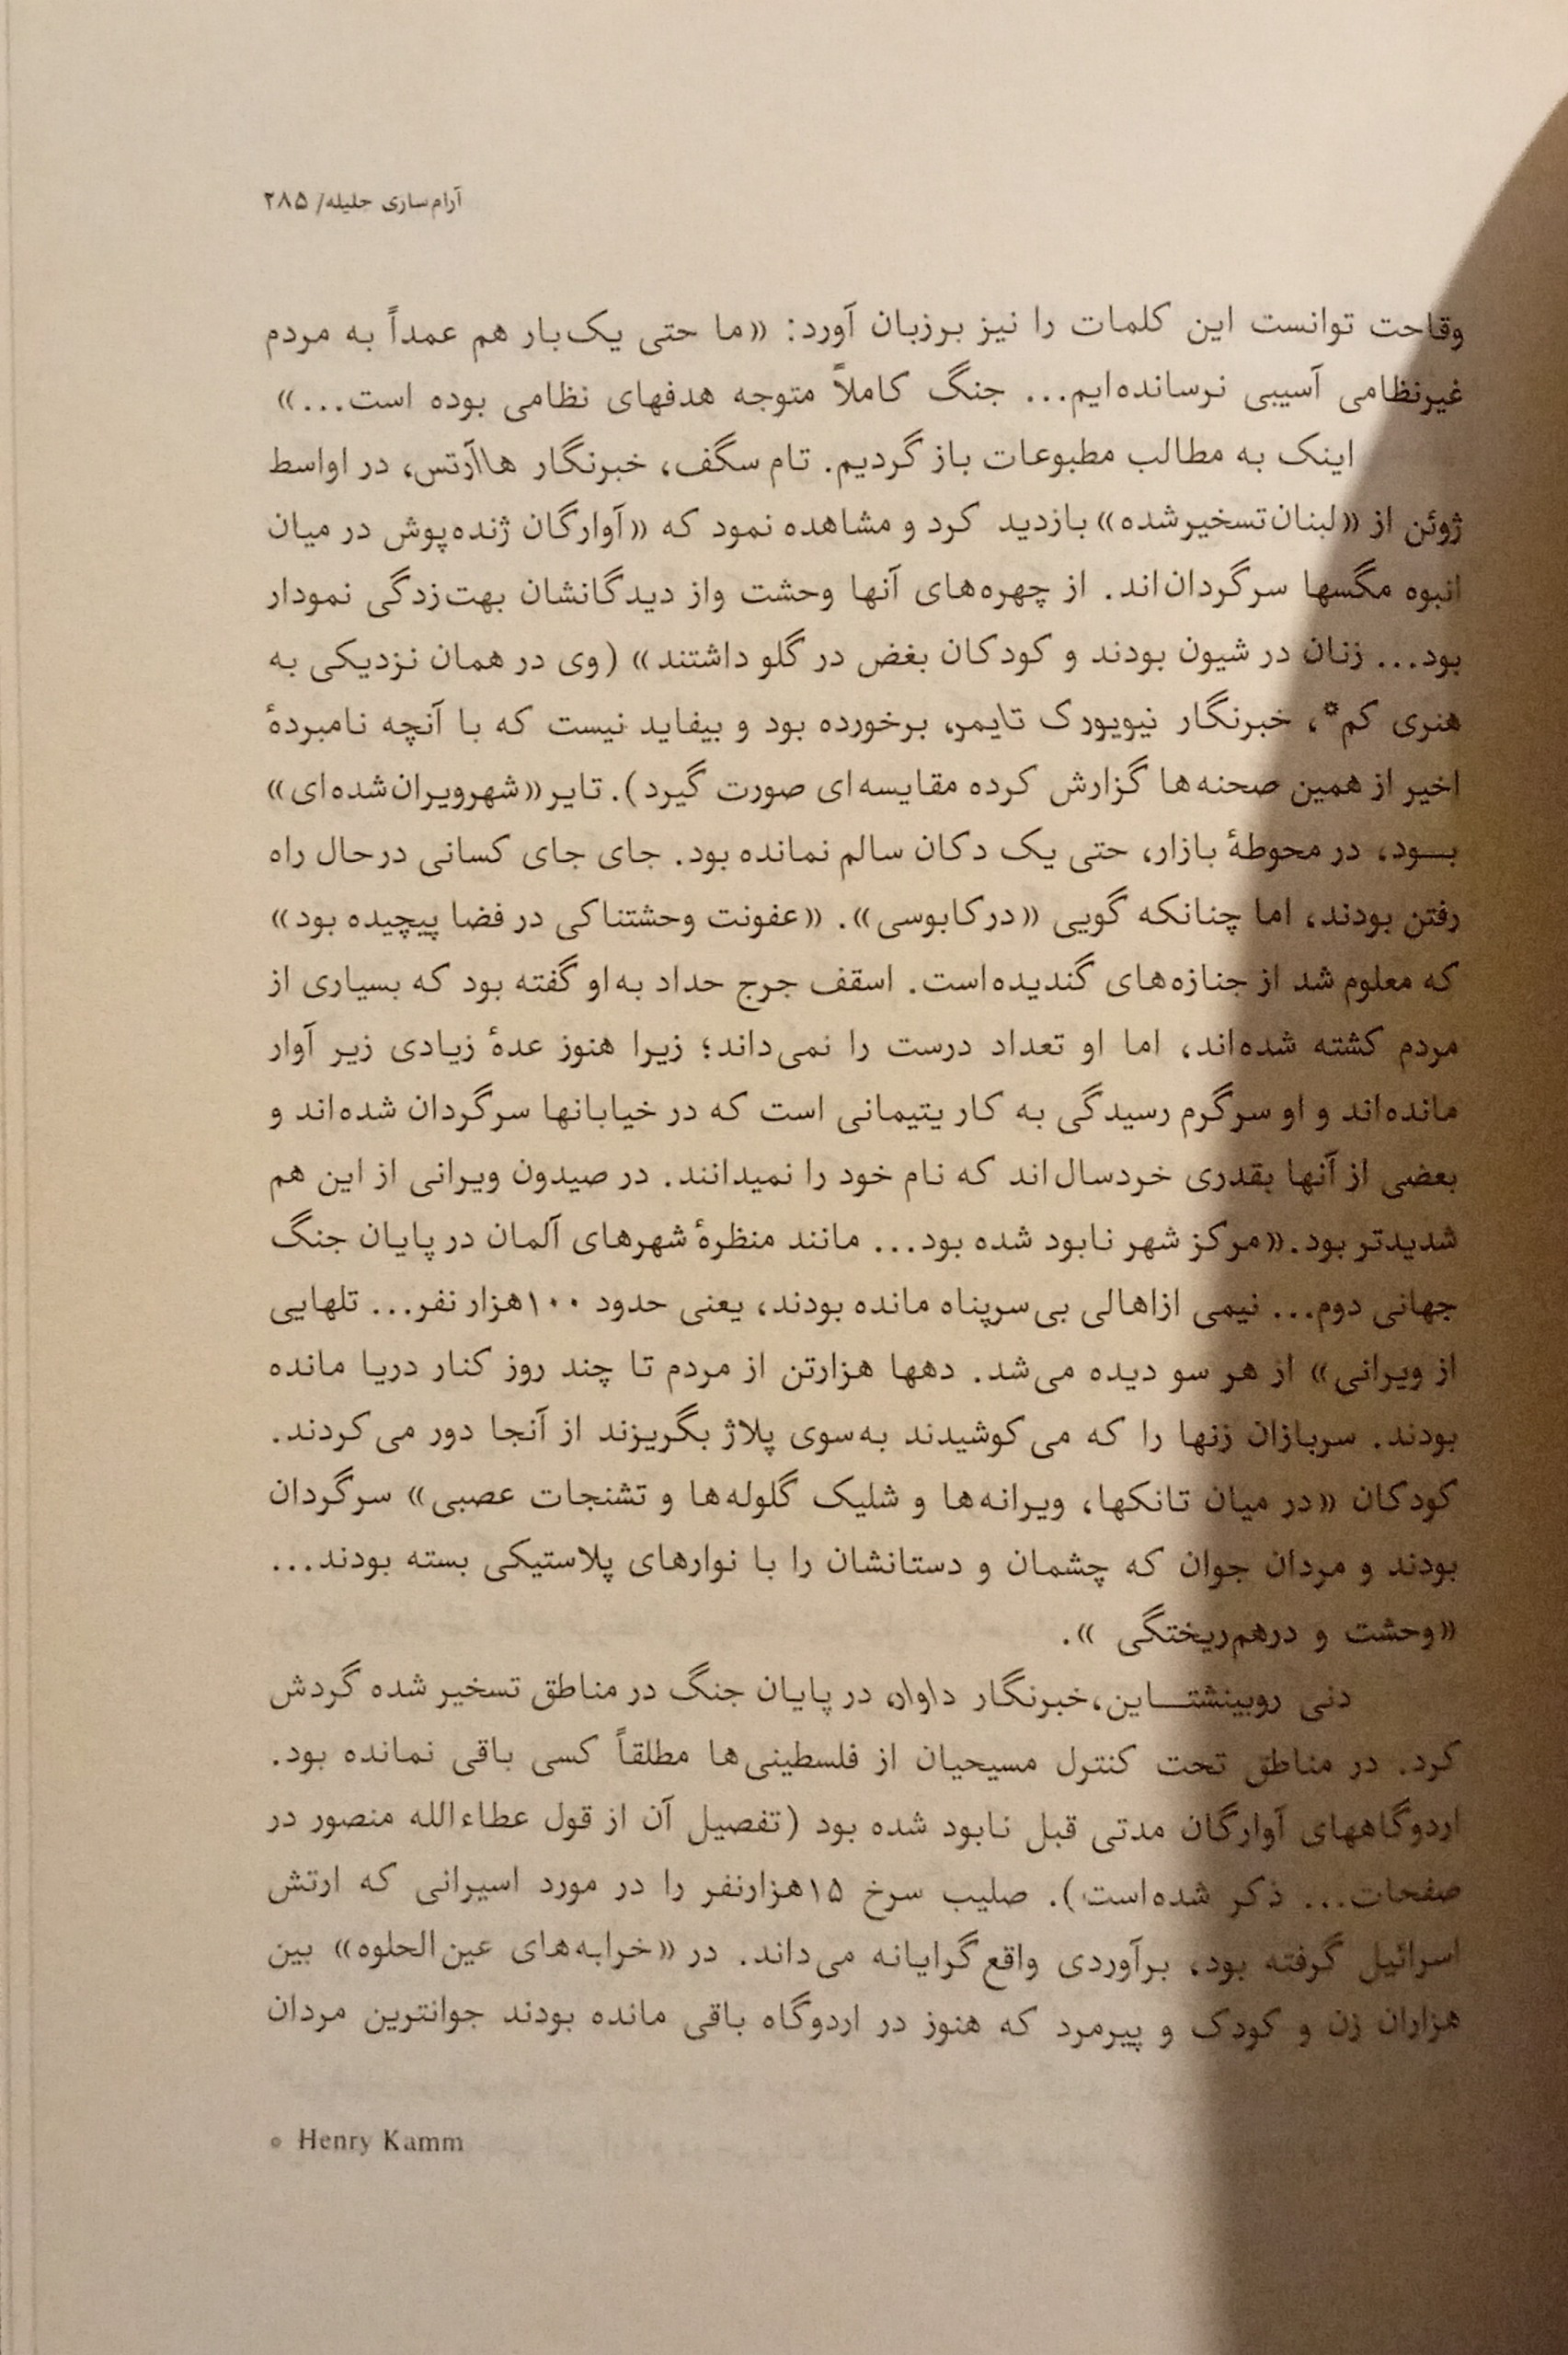 آرام‌سازی جلیله/ ۲۸۵
وقاحت توانست این کلمات را نیز برزبان آورد: «ما حتی یک‌بار هم عمداً به مردم
غیرنظامی آسیبی نرسانده‌ایم... جنگ کاملاً متوجه هدفهای نظامی بوده است...»
اینک به مطالب مطبوعات باز گردیم. تام سگف، خبرنگار هاآرتس، در اواسط
ژوئن از «لبنان‌تسخیرشده» بازدید کرد و مشاهده نمود که «آوارگان ژنده‌پوش در میان
انبوه مگسها سرگردان‌اند. از چهره‌های آنها وحشت واز دیدگانشان بهت‌زدگی نمودار
بود... زنان در شیون بودند و کودکان بغض در گلو داشتند» (وی در همان نزدیکی به
هنری کم*، خبرنگار نیویورک تایمر، برخورده بود و بیفاید نیست که با آنچه نامبردهٔ
اخیر از همین صحنه‌ها گزارش کرده مقایسه‌ای صورت گیرد). تایر«شهرویران‌شده‌ای»
بـــود، در محوطهٔ بازار، حتی یک دکان سالم نمانده بود. جای جای کسانی درحال راه
رفتن بودند، اما چنانکه گویی «درکابوسی». «عفونت وحشتناکی در فضا پیچیده بود»
که معلوم شد از جنازه‌های گندیده‌است. اسقف جرج حداد به‌او گفته بود که بسیاری از
مردم کشته شده‌اند، اما او تعداد درست را نمی‌داند؛ زیرا هنوز عدهٔ زیادی زیر آوار
مانده‌اند و او سرگرم رسیدگی به کار یتیمانی است که در خیابانها سرگردان شده‌اند و
بعضی از آنها بقدری خردسال‌اند که نام خود را نمیدانند. در صیدون ویرانی از این هم
شدیدتر بود.«مرکز شهر نابود شده بود... مانند منظرهٔ شهرهای آلمان در پایان جنگ
جهانی دوم... نیمی ازاهالی بی‌سرپناه مانده بودند، یعنی حدود ۱۰۰هزار نفر... تلهایی
از ویرانی» از هر سو دیده می‌شد. دهها هزارتن از مردم تا چند روز کنار دریا مانده
بودند. سربازان زنها را که می‌کوشیدند به‌سوی پلاژ بگریزند از آنجا دور می‌کردند.
کودکان «در میان تانکها، ویرانه‌ها و شلیک گلوله‌ها و تشنجات عصبی» سرگردان
بودند و مردان جوان که چشمان و دستانشان را با نوارهای پلاستیکی بسته بودند...
«وحشت و درهم‌ریختگی ».
دنی روبینشتـــاین،خبرنگار داوار، در پایان جنگ در مناطق تسخیر شده گردش
کرد. در مناطق تحت کنترل مسیحیان از فلسطینی‌ها مطلقاً کسی باقی نمانده بود.
اردوگاههای آوارگان مدتی قبل نابود شده بود (تفصیل آن از قول عطاءالله منصور در
صفحات... ذکر شده‌است). صلیب سرخ ۱۵هزارنفر را در مورد اسیرانی که ارتش
اسرائیل گرفته بود، برآوردی واقع‌گرایانه می‌داند. در «خرابه‌های عین‌الحلوه» بین
هزاران زن و کودک و پیرمرد که هنوز در اردوگاه باقی مانده بودند جوانترین مردان
* Henry Kamm